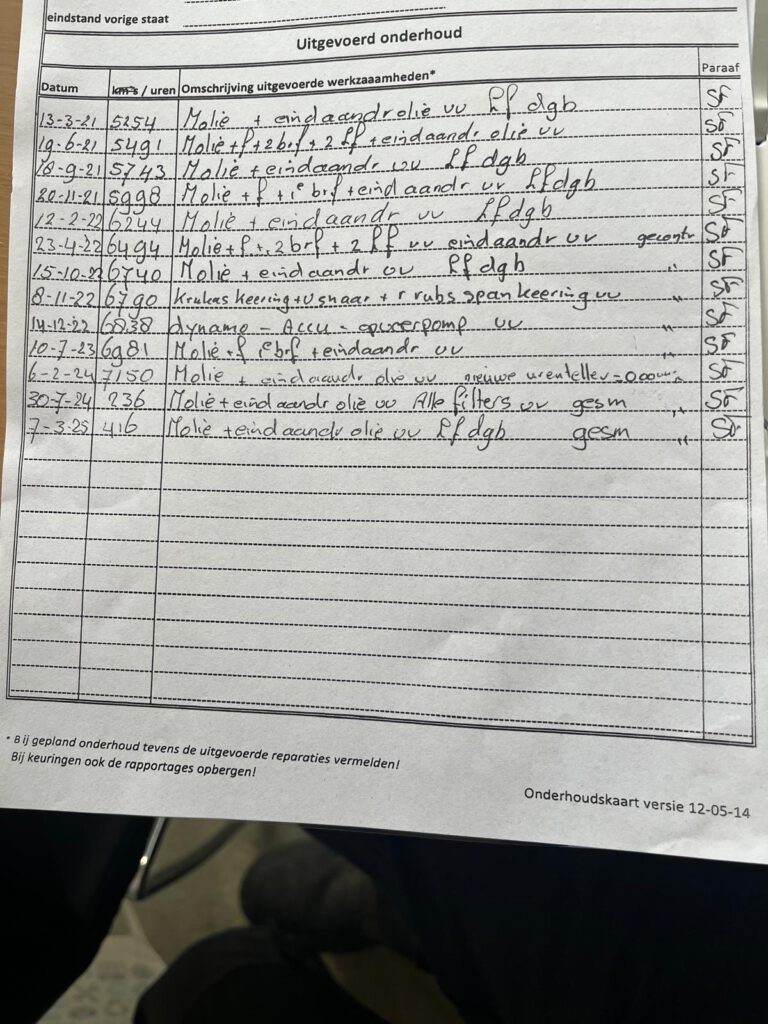 eindstand vorige staat
Uitgevoerd onderhoud
Datum km's / uren Omschrijving uitgevoerde werkzaaamheden* Paraaf
13-3-21 5254 Molië + eindaandr olie vv Lf dgb SF
19-6-21 5491 Molië+f+2brf+2 Lf+eindaandr olie vv SF
18-9-21 5743 Molië+eindaandr vv Lf dgb SF
20-11-21 5998 Molië+f+1e brf+eindaandr vv Lf dgb SF
12-2-22 6244 Molië + eindaandr vv Lf dgb SF
23-4-22 6494 Molië+f+2brf+2 Lf vv eindaandr vv gecontr SF
15-10-22 6740 Molië + eindaandr vv Lf dgb " SF
8-11-22 6790 krukaskeering+v snaar + spankeering vv " SF
14-12-22 6838 dyname - Accu - vv " SF
10-7-23 6981 Molië+f brf +eindaandr vv " SF
6-2-24 7150 Molië + eindaandr olie vv nieuwe urenteller= SF
30-7-24 236 Molië+eindaandr olie vv Alle filters vv gesm " SF
7-3-25 416 Molië +eindaandr olie vv Lf dgb gesm " SF
* Bij gepland onderhoud tevens de uitgevoerde reparaties vermelden!
Bij keuringen ook de rapportages opbergen!
Onderhoudskaart versie 12-05-14